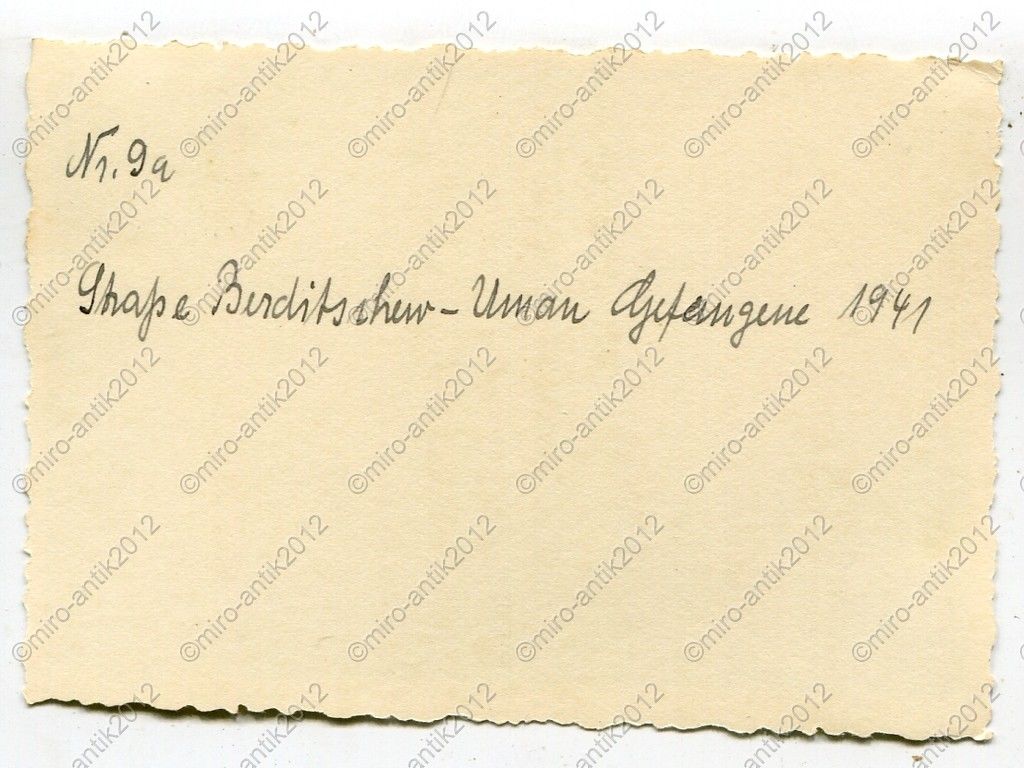 Nr. 9a
Straße Berditschew – Uman Gefangene 1941
©miro-antik2012